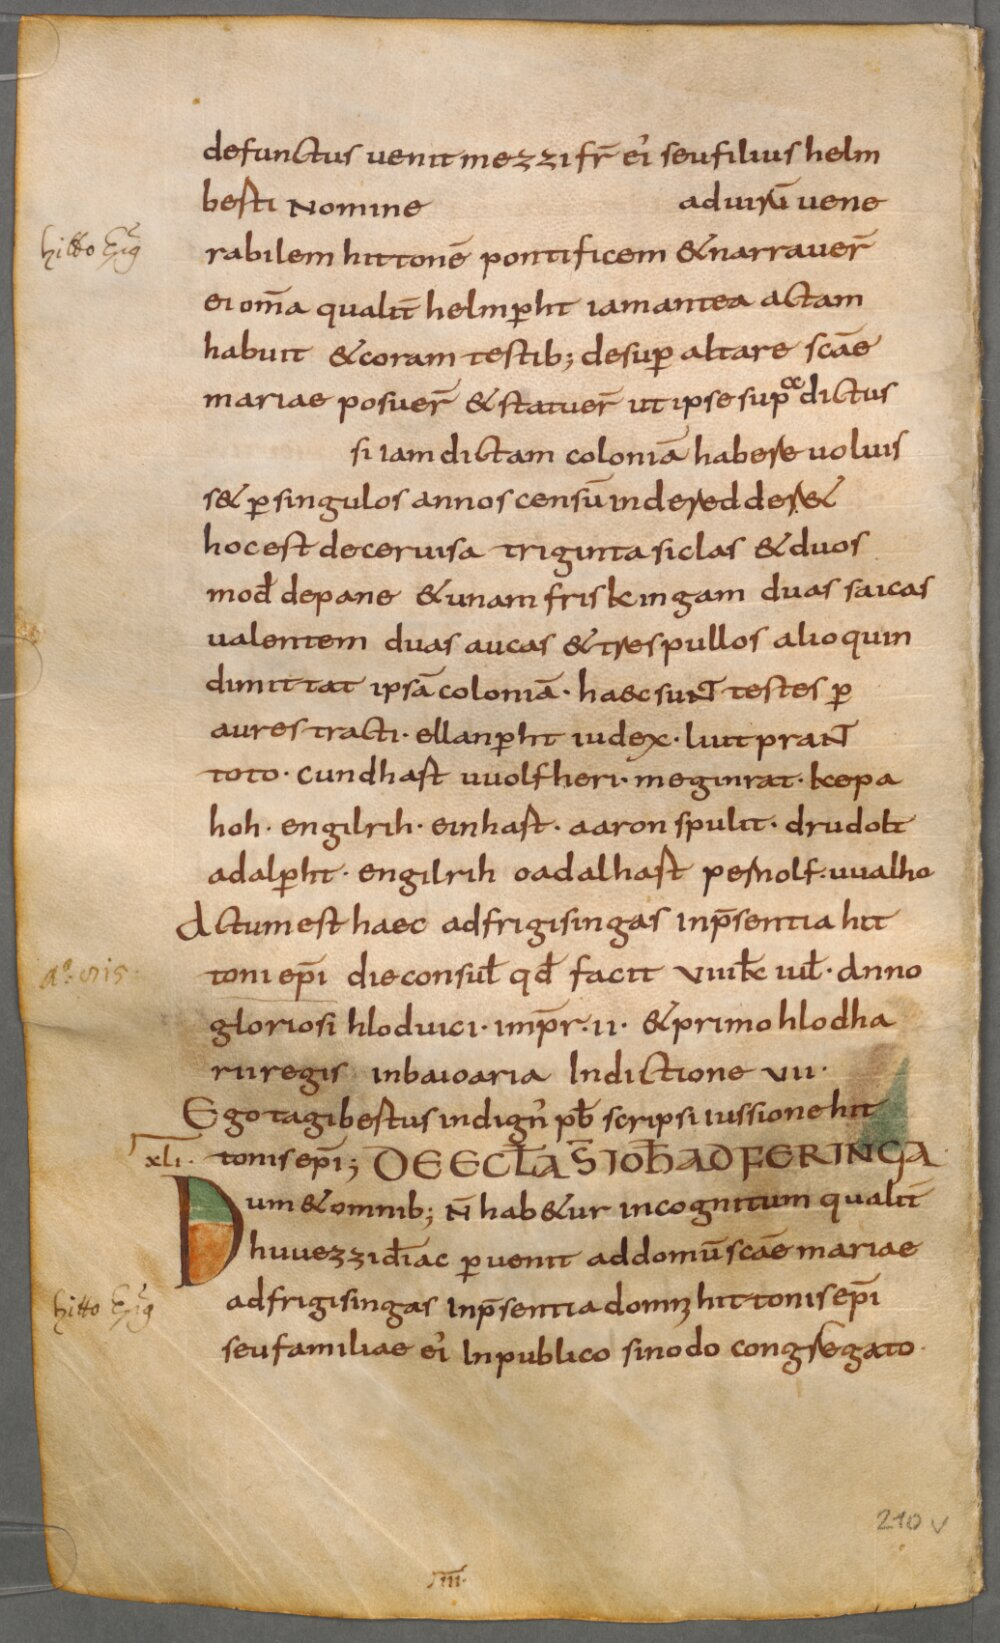 defunctus uenit mezzi fr̄ ei᾽ seu filius helm
besti Nomine aduirū uene
hitto Ep̄g
rabilem hittonē pontificem &narrauer̄
ei om̄a qualit̄ helmꝑht iamantea actam
habuit &coram testib; desuꝑ altare scāe
mariae posuer̄ &statuer̄ ut ipse supͣdictus
si iam dictam coloniā habere uoluis
s& ꝑsingulos annos censū inde redder&
hoc est deceruisa triginta siclas &duos
mod̄ depane &unam friskingam duas saicas
ualentem duas aucas &trespullos alioquin
dimittat ipsā coloniā· haec suNT testes ꝑ
aures tracti· ellanꝑht iudex· liutpraNT
toto· cundhast uuolfheri· meginrat· kepa
hoh· engilrih· einhast· aaron spulit· drudolt
adalꝑht· engilrih oadalhast pernolf· uualho
Actum est haec adfrigisingas inp̄sentia hit
aº· 815·
toni ep̄i die consul̄ qd̄ facit viiik̄ iul̄· Anno
gloriosi hloduici· imp̄r· ii· &primo hlodha
rii regis inbaioaria Indictione vii·
Ego tagibestus indign᾽ pb̄ scripsi iussione hit
xli· tonis ep̄i; DE ECL̄A S̄ IOH̄ AD FERINGA
Dum &omnib; N̄ hab&ur incognitum qualit̄
huuezzi diāc ꝑuenit addomū scāe mariae
hitto Ep̄g
adfrigisingas Inp̄sentia domnꝫ hittonis ep̄i
seu familiae ei᾽ Inpublico sinodo congregato·
210 v
IIII·